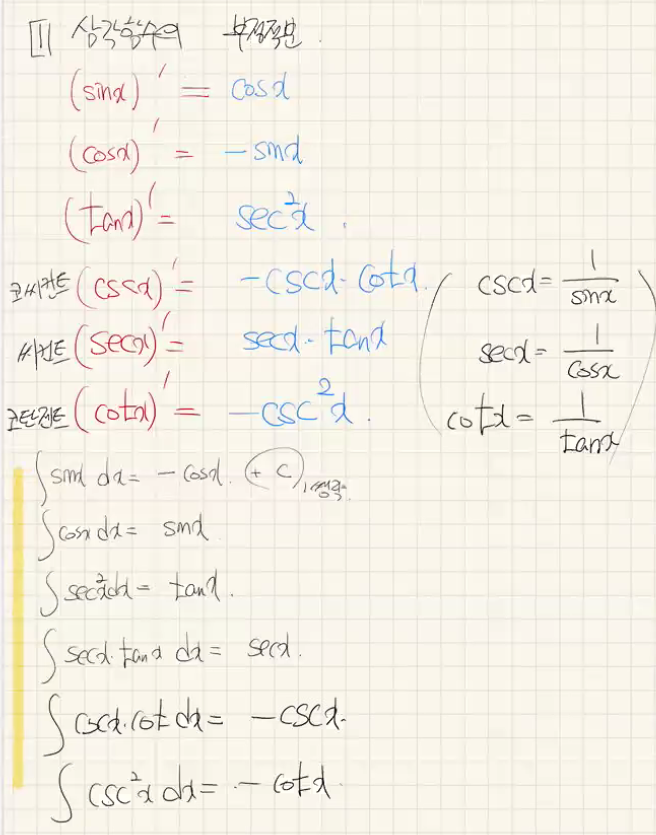 1 삼각함수의 부정적분.
(sinx)′ = cosx
(cosx)′ = -sinx
(tanx)′ = sec²x.
코씨컨트 (cscx)′ = -cscx·cotx.
씨컨트 (secx)′ = secx·tanx
코탄젠트 (cotx)′ = -csc²x.
(cscx = 1/sinx
secx = 1/cosx
cotx = 1/tanx)
∫sinx dx = -cosx. + C, 생략.
∫cosx dx = sinx
∫sec²xdx = tanx.
∫secx·tanx dx = secx.
∫cscx·cot dx = -cscx.
∫csc²x dx = -cotx.